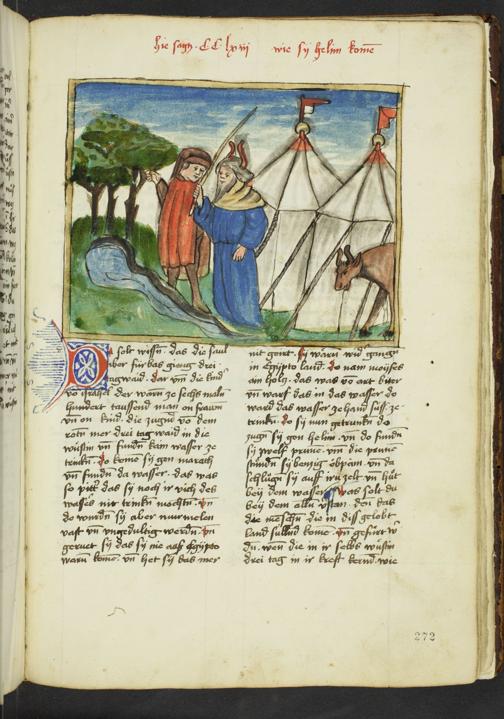 hie sagn · CC lxvij wie sÿ helim kome
Du solt wissn das die saul
aber fürbas gieng drei
tagwaid. dar vn die kind
vo israhel der warn ze sechs maln
hundert tausend man on frawn
vn on kind. die zugn vo dem
rotn mer drei tag waid in die
wüstin vn fundn kain wasser ze
trinkn. do kome sÿ gen marath
vn fundn da wasser. das was
so pitt das sÿ noch ir vich des
wassrs nit trinkn mochtn. vn
do wurdn sÿ aber murmelen
vast vn vngeduldig werdn. vn
geruet sÿ das sÿ nie aus Egÿpto
warn kome. vn het sÿ das mer
nit geirt. sÿ warn wid gangn
in Egipto land. do nam moÿses
ain holtz. das was vo art bitter
vn warf das in das wasser. do
ward das wasser zehand süss ze
trinkn. do sÿ nun getrunkn do
zugn sÿ gen helim. vn do fundn
sÿ zwelf prune. vn die prune
stundn sÿbenzig öbpam. vn da
schlugn sÿ auf vn hüt
beÿ dem wasser. was solt du
beÿ dem allen vstan. den das
die menschn die in diss gelobt
land sullnd kome. vn gefürt w
dn. wen die in ir selbs wüstin
drei tag in ir krest kerend. wie
272